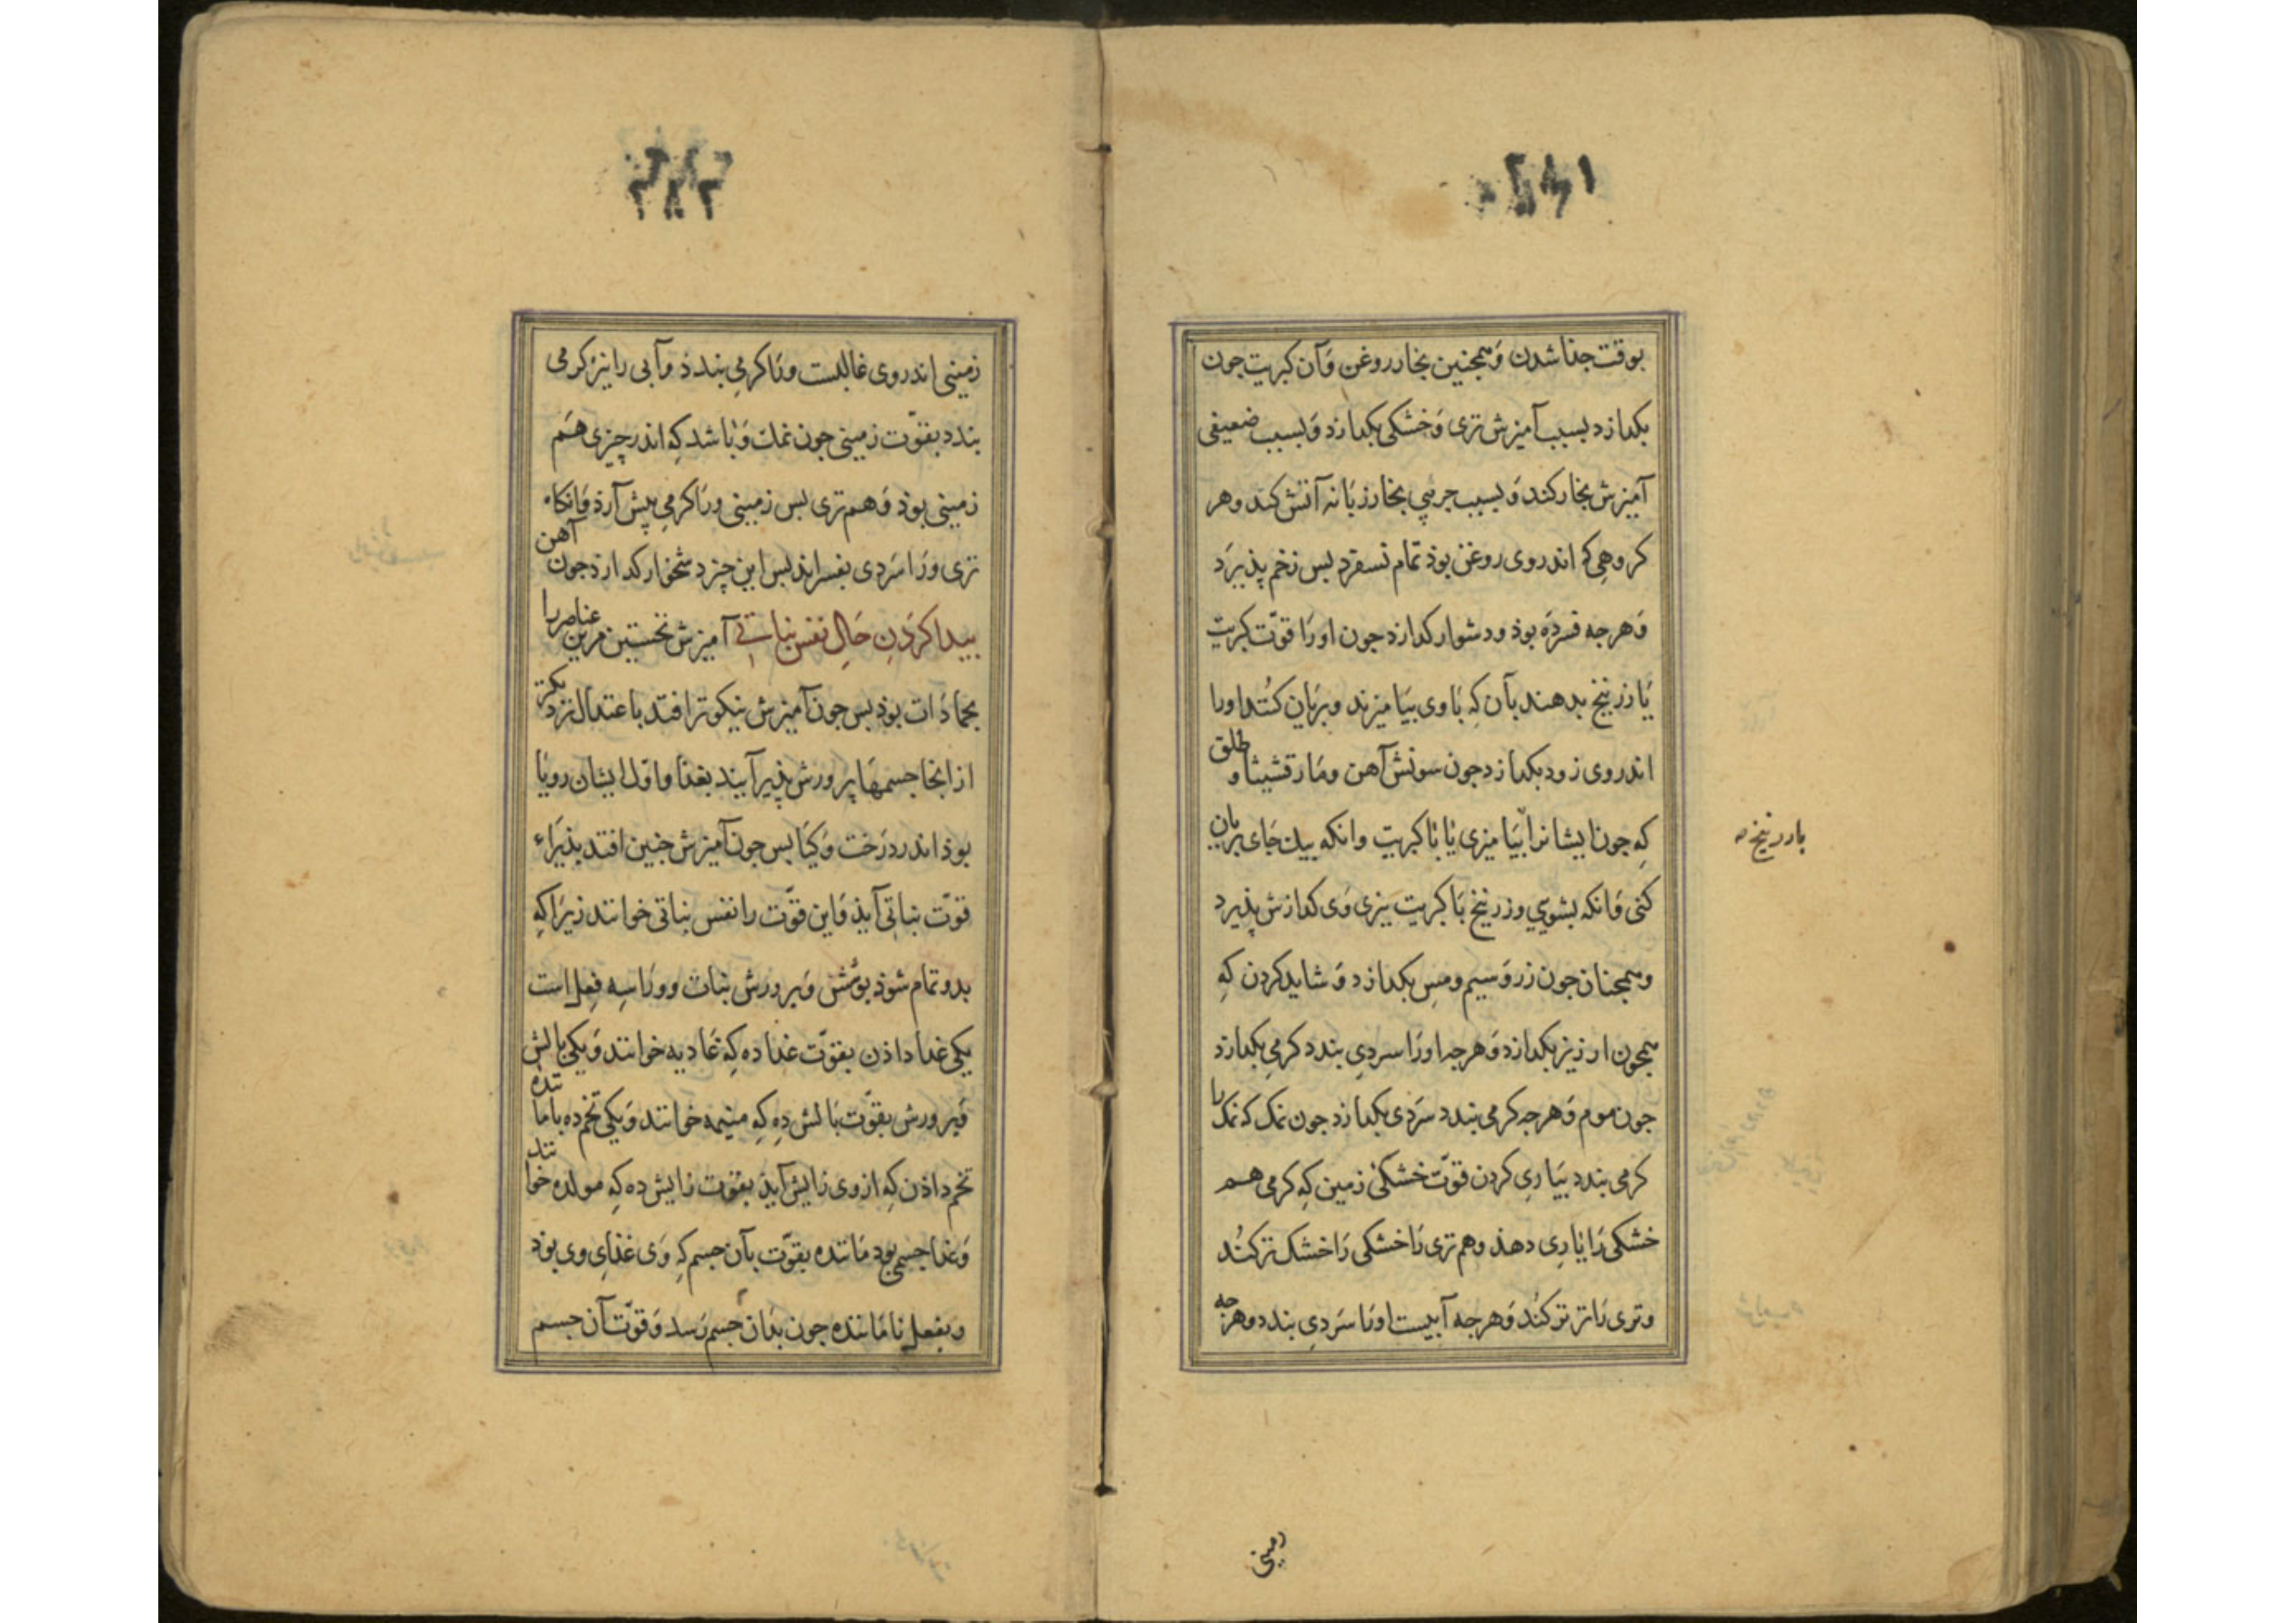 ۲۸۱
بوقت جذا شدن وَهمچنین بخار روغن وَآن کبریت جون
بکدازد بسبب آمیزش تری وَخشکی بکدازد وَبسبب ضعیفی
آمیزش بخار کند وَبسبب جربی بخار زبَانه آتش کند وهر
کروهی که اندروی روغن بوذ تمام نسفرد بس زخم پذیرَد
وَهرجه فسردَه بوذ ودشوار کدازد جون اورَا قوّت کبریت
یَا زرنیخ بدهند بآن کِه بَاوی بیَامیزند وبریَان کنُند اورا
اندروی زود بکدازد جون سونش آهن ومَارقشیثا و طلق
کِه جون ایشانرا بیَامیزی یَا بَا کبریت وانکه بیك جَای بریان
کنی وَانکه بشویی وزرنیخ بَا کبریت یَزی وَی کدازش پذیرد
وهمجنان جون زر وَسیم ومِس بکدازد وَشاید کردن کِه
همجون ارزیز بکدازد وَهرجه اورَا سردیِ بندد کرمیِ بکدازد
جون موم وَهرجه کرمی بندد سَردی بکدازد جون نمک که نمک را
کرمی بندد بیَاریِ کردن قوّت خشکی زمین کِه کرمی هـم
خشکی رَا یَاریِ دهذ وهم تری رَا خشکی رَا خشک تر کنُد
وتری رَا تر تر کنُد وَهرجه آبیست اورَا سَردیِ بندد وهرجه
بازرنیخ
زمینی
۲۸۲
زمینی اندروی غالبست ورَا کرمیِ بندد وآبی را نیز کرمی
بندد بقوّت زمینی جون نمك وَبَاشد کِه اندر چیزی هـَم
زمینی بوذ وَهـم تری بس زمینی ورَا کرمیِ پیش آرد وَانکاه
تری ورَا سَردی بفسراند بس این چیز دشخوار کدازد جون آهن
بیدا کردَنِ حَالِ نفس نباتی آمیزش نخستین مرین عناصر را
بجمادَات بوذ بس جون آمیزش نیکوتر افتد باعتدال نزدیکتر
از انجا جسمهَا پرورش پذیر آیند بغذا واوّل ایشان رویَا
بوذ اندر درَخت وَکیَا بس جون آمیزش جنین افتد بذیرَاء
قوّت نباتی آیذ وَاین قوّت را نفس نباتی خوانند زیرَا کِه
بدو تمام شوذ بوشش وَپرورش نبات وورَا سِه فِعل است
یکی غذا داذن بقوّت غذا ده کِه غَادیه خوانند وَیکی بالش
وَپرورش بقوّت بَالش دِه کِه منیمه خوانند وَیکی تخم ده بامانده
تخم داذن کِه ازوی زایش آیذ بقوّت زایش ده کِه مولده خوانند
وَغذا جسمی بود مَاننده بقوّت بآن جسم کِه وَی غذایِ وی بوذ
وبفعل نامَاننده جون بدَان جسم رَسد وَقوّت آن جسم